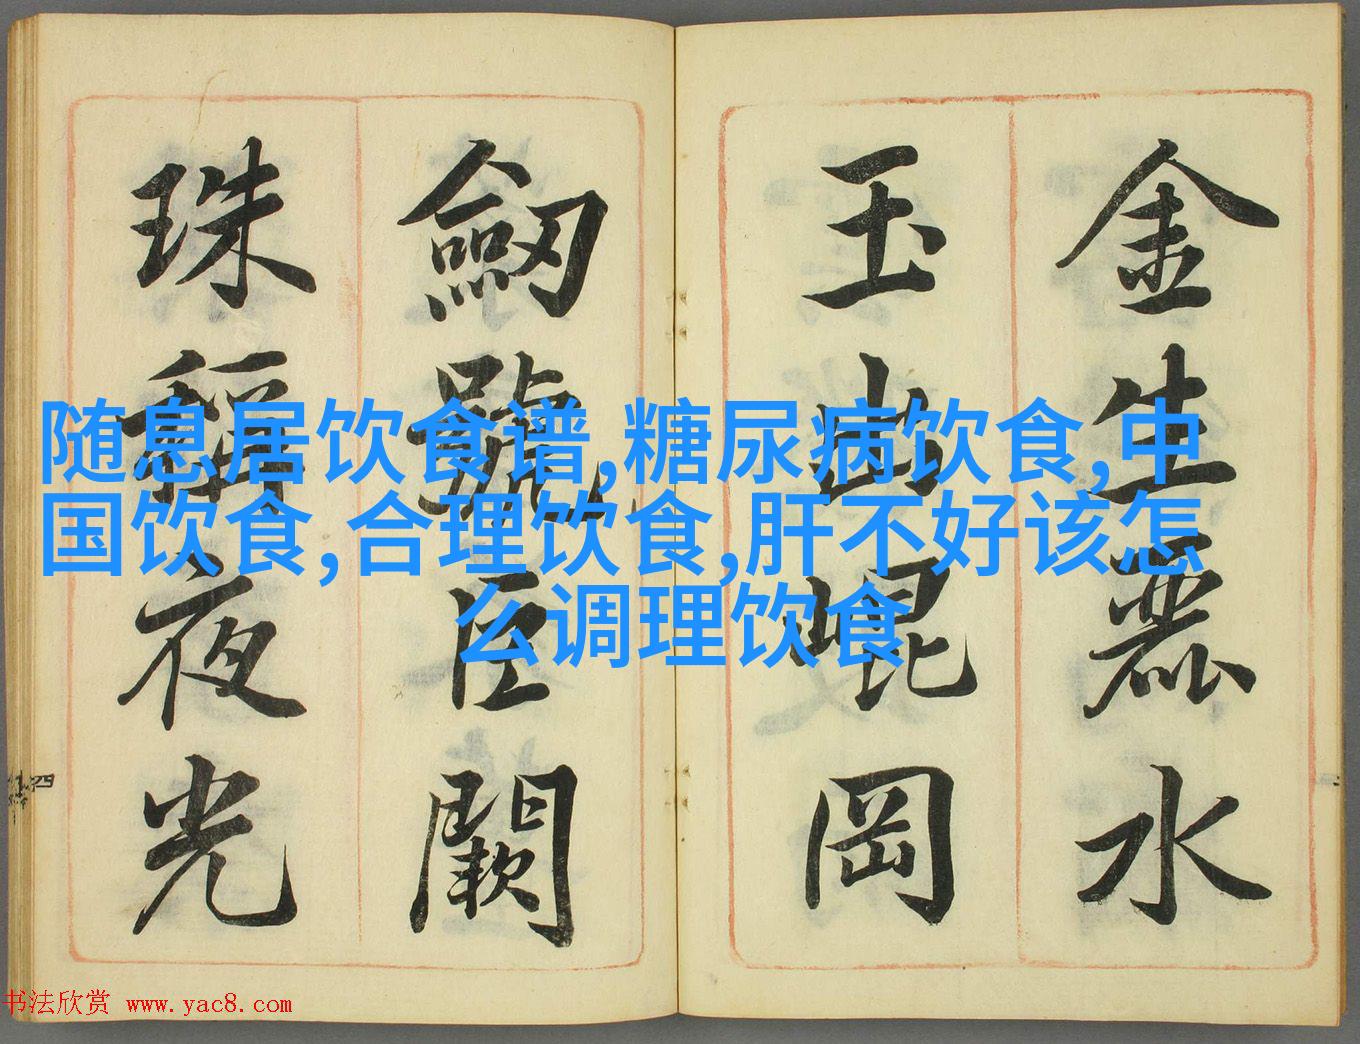 金生麗水
玉出崐岡
劒號巨闕
珠稱夜光
随息居饮食谱,糖尿病饮食,中
国饮食,合理饮食,肝不好该怎
么调理饮食
四
书法欣赏 www.yac8.com